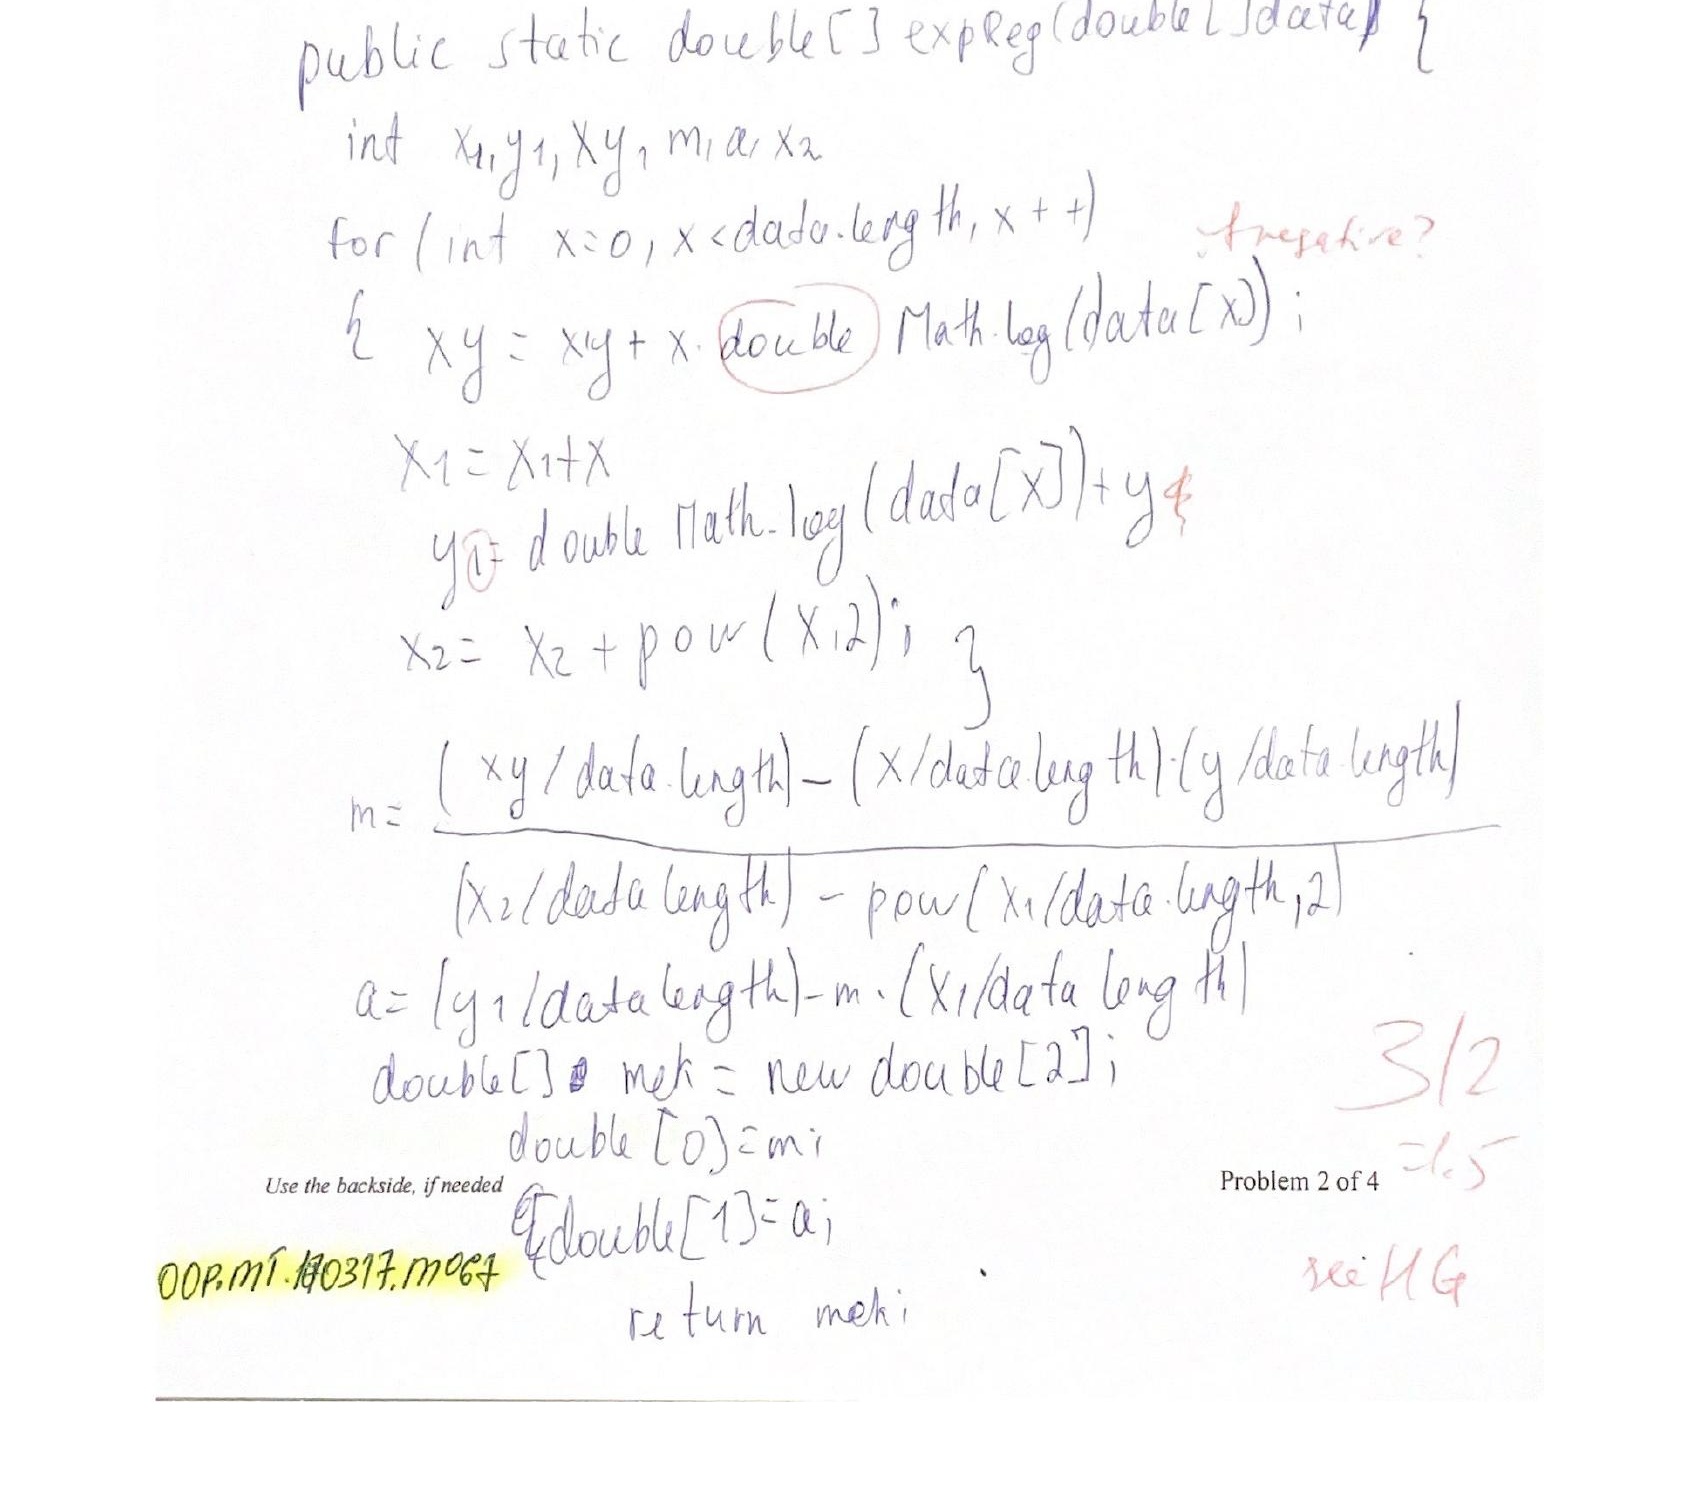 public static double[] expReg(double[] data) {
int x1, y1, xy, m, a, x2
for (int x=0, x<data.length, x++)
negative?
{ xy = xy + x · double Math.log(data[x]);
x1 = x1+x
y1= double Math.log(data[x])+y
x2= x2 + pow(x,2); }
(xy/data.length)-(x/data.length)·(y/data.length)
m=
(x2/data length) - pow(x1/data.length,2)
a= (y1/data length)-m·(x1/data length)
double[] mek = new double[2];
3/2
double [0]=m;
=1.5
Use the backside, if needed
Problem 2 of 4
double[1]=a;
OOP.MT.170317.M067
HG
return mek;